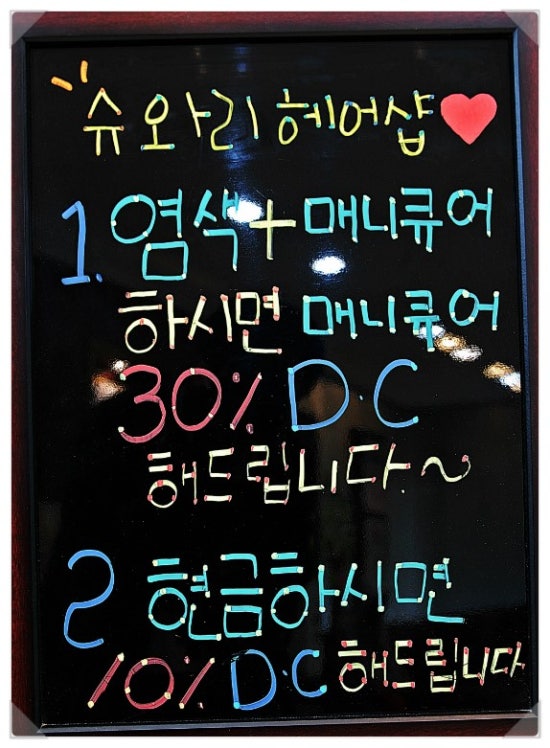 슈와리헤어샵
1. 염색+매니큐어
하시면 매니큐어
30% D·C
해드립니다.~
2 현금하시면
10% D·C 해드립니다